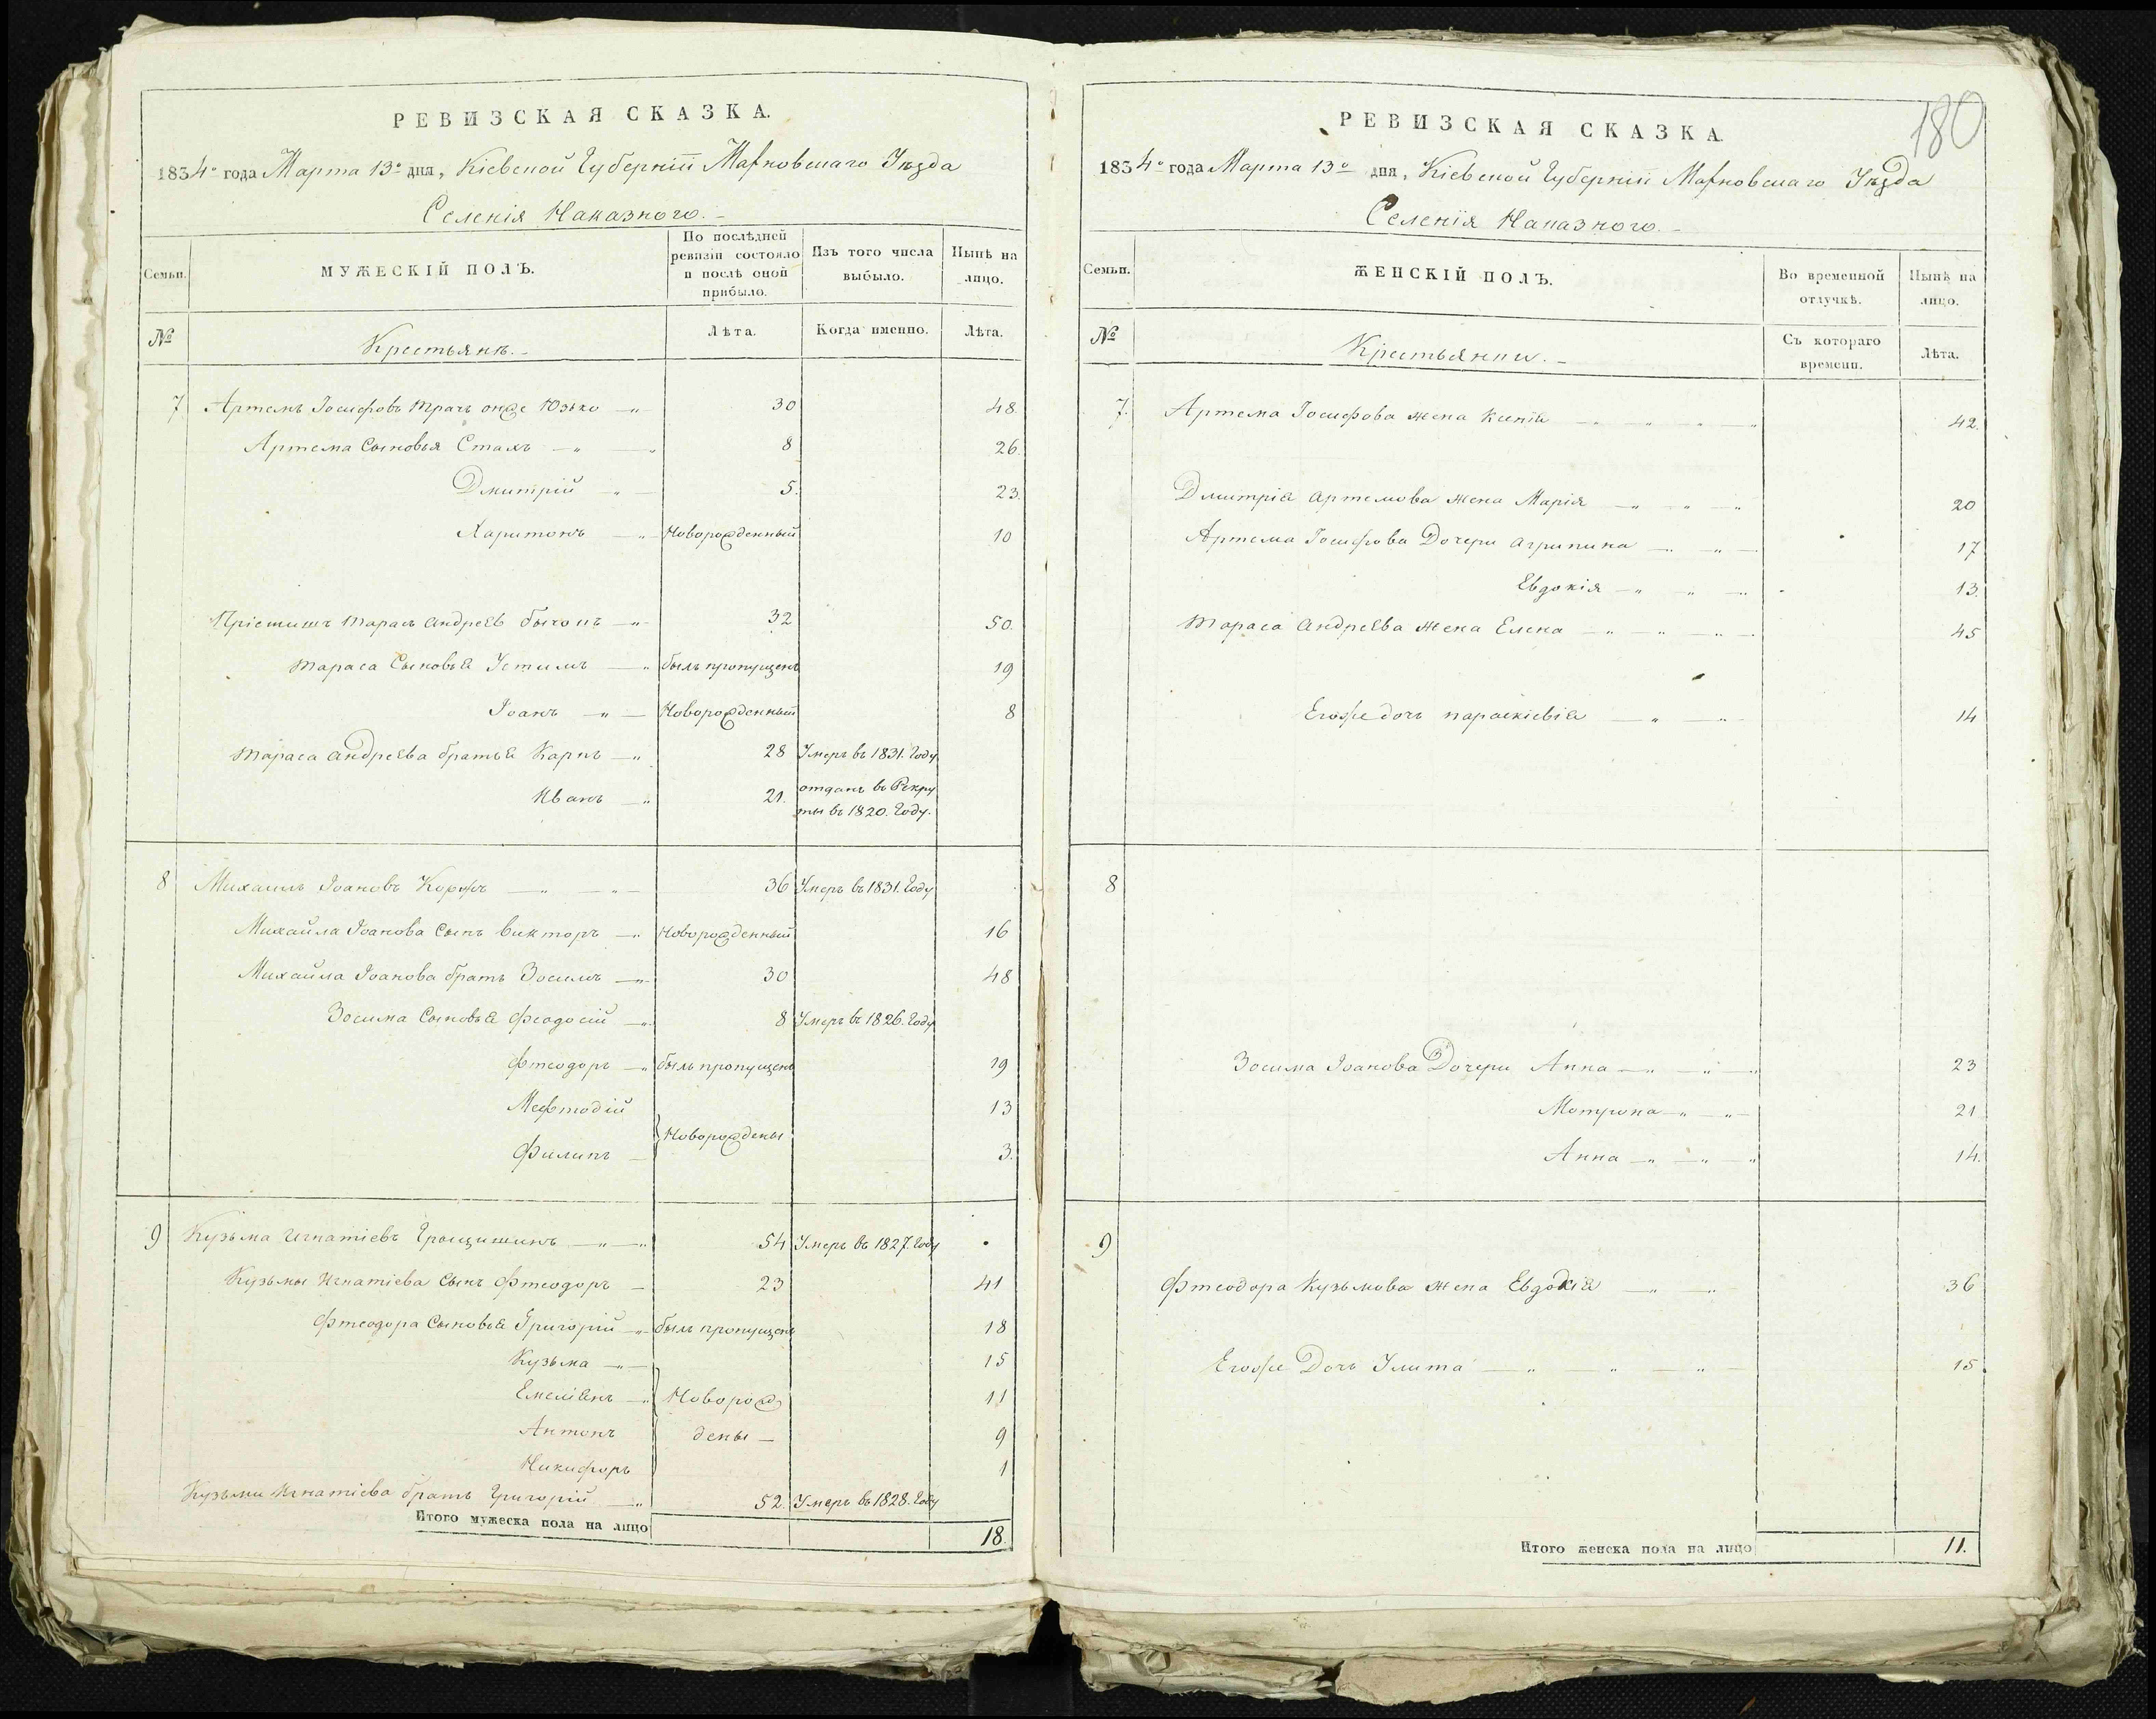 РЕВИЗСКАЯ СКАЗКА.
1834го года Марта 13го дня, Кіевской Губерніи Махновскаго Уѣзда
Селенія Наказного.
Семьи.
МУЖЕСКІЙ ПОЛЪ.
По послѣдней ревизіи состояло и послѣ оной прибыло.
Изъ того числа выбыло.
Нынѣ на лицо.
№
Крестьянѣ.
Лѣта.
Когда именно.
Лѣта.
7 Артемъ Іосифовъ Трачъ онже Юзько 30 48.
Артема Сыновья Стахъ 8 26.
Дмитрій 5. 23.
Харитонъ Новорожденный 10
Тарасъ Андреевъ 32 50.
Тараса Сыновья Устимъ былъ пропущенъ 19
Іоанъ Новорожденный 8
Тараса Андреева братья Карпъ 28 Умеръ въ 1831. Году
Иванъ 21. отданъ въ Рекру
ты въ 1820. Году.
8 Михаилъ Іоановъ Коржъ 36 Умеръ въ 1831. Году
Михайла Іоанова Сынъ Викторъ Новорожденный 16
Михайла Іоанова братъ Зосимъ 30 48
Зосима Сыновья Феодосій 8 Умеръ въ 1826. Году
Фтеодоръ былъ пропущенъ 19
Мефтодій 13
Новорождены
Филипъ 3.
9 Кузьма Игнатіевъ Грыцишинъ 54 Умеръ въ 1827. Году
Кузьмы Игнатіева Сынъ Фтеодоръ 23 41
Фтеодора Сыновья Григорій былъ пропущенъ 18
Кузьма 15
Емеліянъ Новорож 11
Антонъ дены 9
Никифоръ 1
Кузьми Игнатіева братъ Григорій 52. Умеръ въ 1828. Году
Итого мужеска пола на лицо 18.
180
РЕВИЗСКАЯ СКАЗКА.
1834го года Марта 13го дня, Кіевской Губерніи Махновскаго Уѣзда
Селенія Наказного.
Семьи.
ЖЕНСКІЙ ПОЛЪ.
Во временной отлучкѣ.
Нынѣ на лицо.
№
Крестьянки.
Съ котораго времени.
Лѣта.
7. Артема Іосифова жена Ксенія 42.
Дмитрія Артемова жена Марія 20
Артема Іосифова Дочери Агрипина 17
Евдокія 13.
Тараса Андреева жена Елена 45
Егоже дочь Параскіевія 14
8
Зосима Іоанова Дочери Анна 23
Мотрона 21
Анна 14.
9
Фтеодора Кузьмова жена Евдокія 36
Егоже Дочь Улита 15.
Итого женска пола на лицо 11.